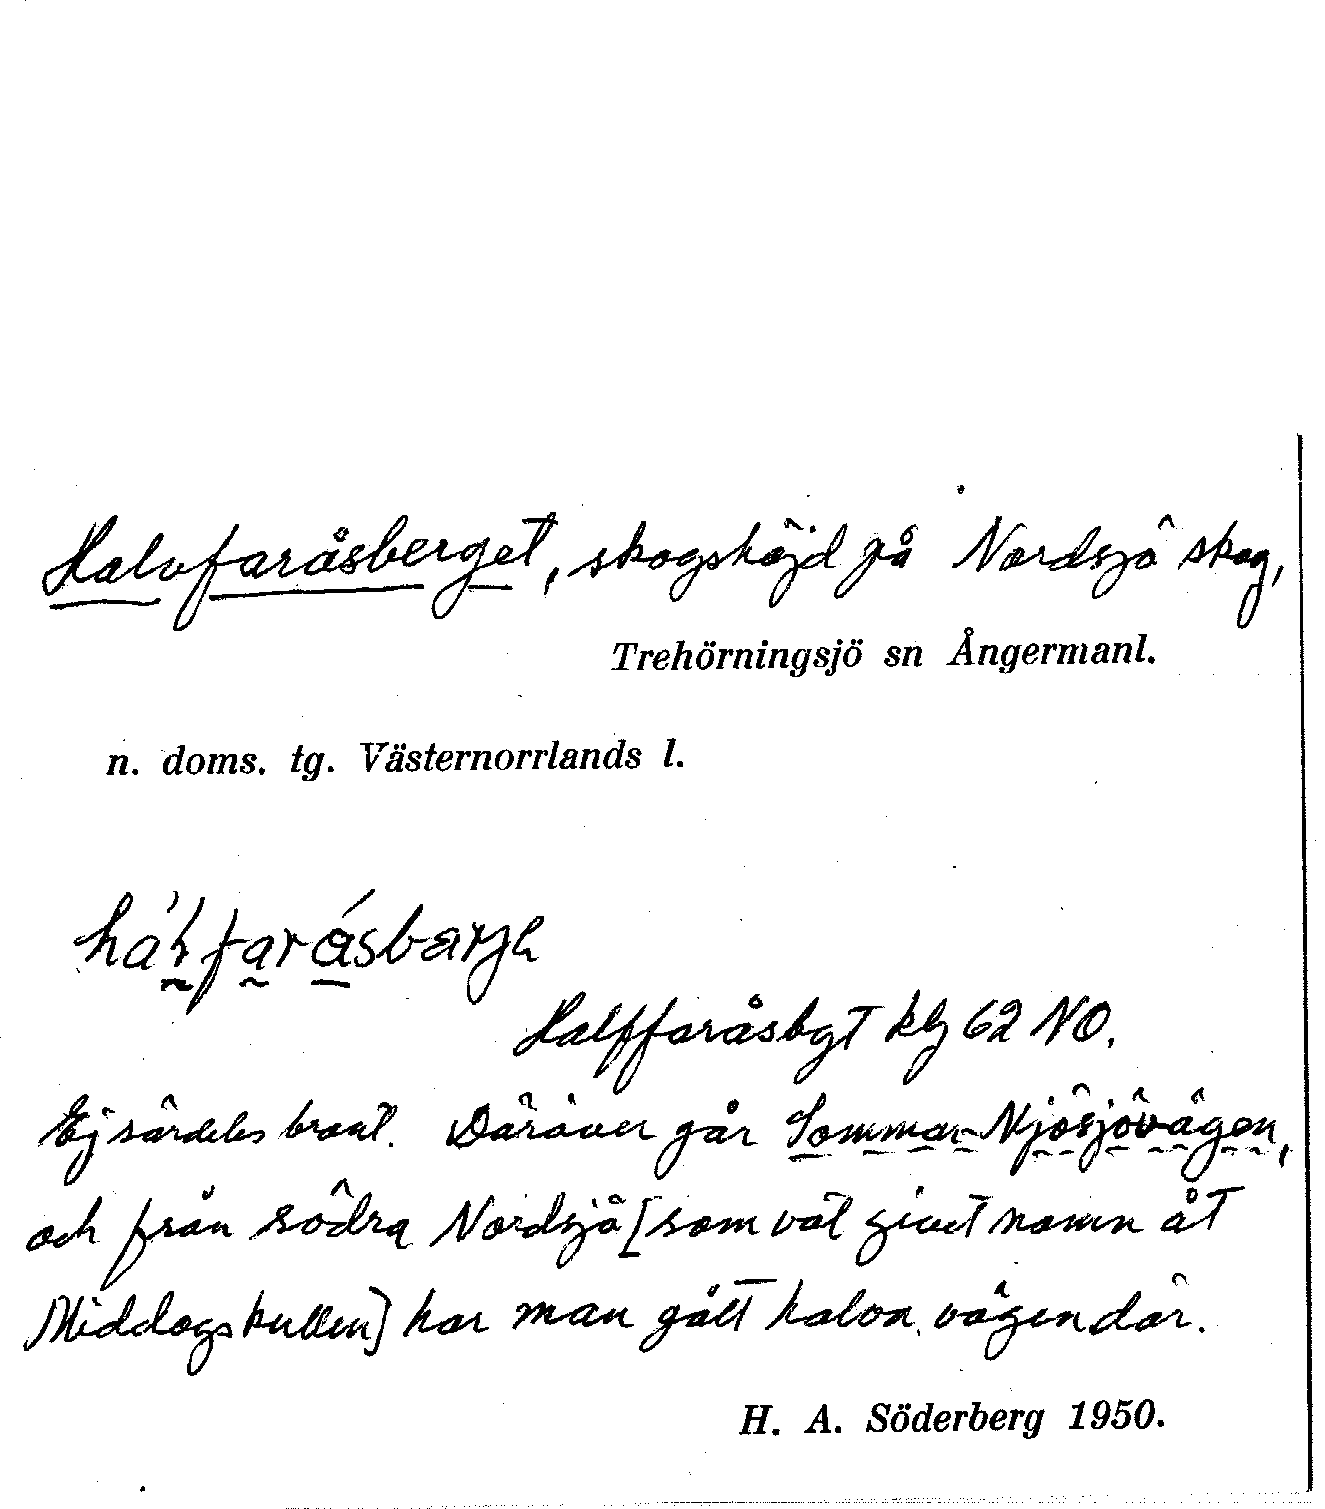 Halvfaråsberget, skogshöjd på Nordsjö skog,
Trehörningsjö sn Ångermanl.
n. doms. tg. Västernorrlands l.
Halffaråsbgt kbl 62 NO.
Ej särdeles brant. Däröver går Sommar-Njösjövägen,
och från södra Nordsjö [som väl givet namn åt
Middagskullen] har man gått halva vägen där.
H. A. Söderberg 1950.